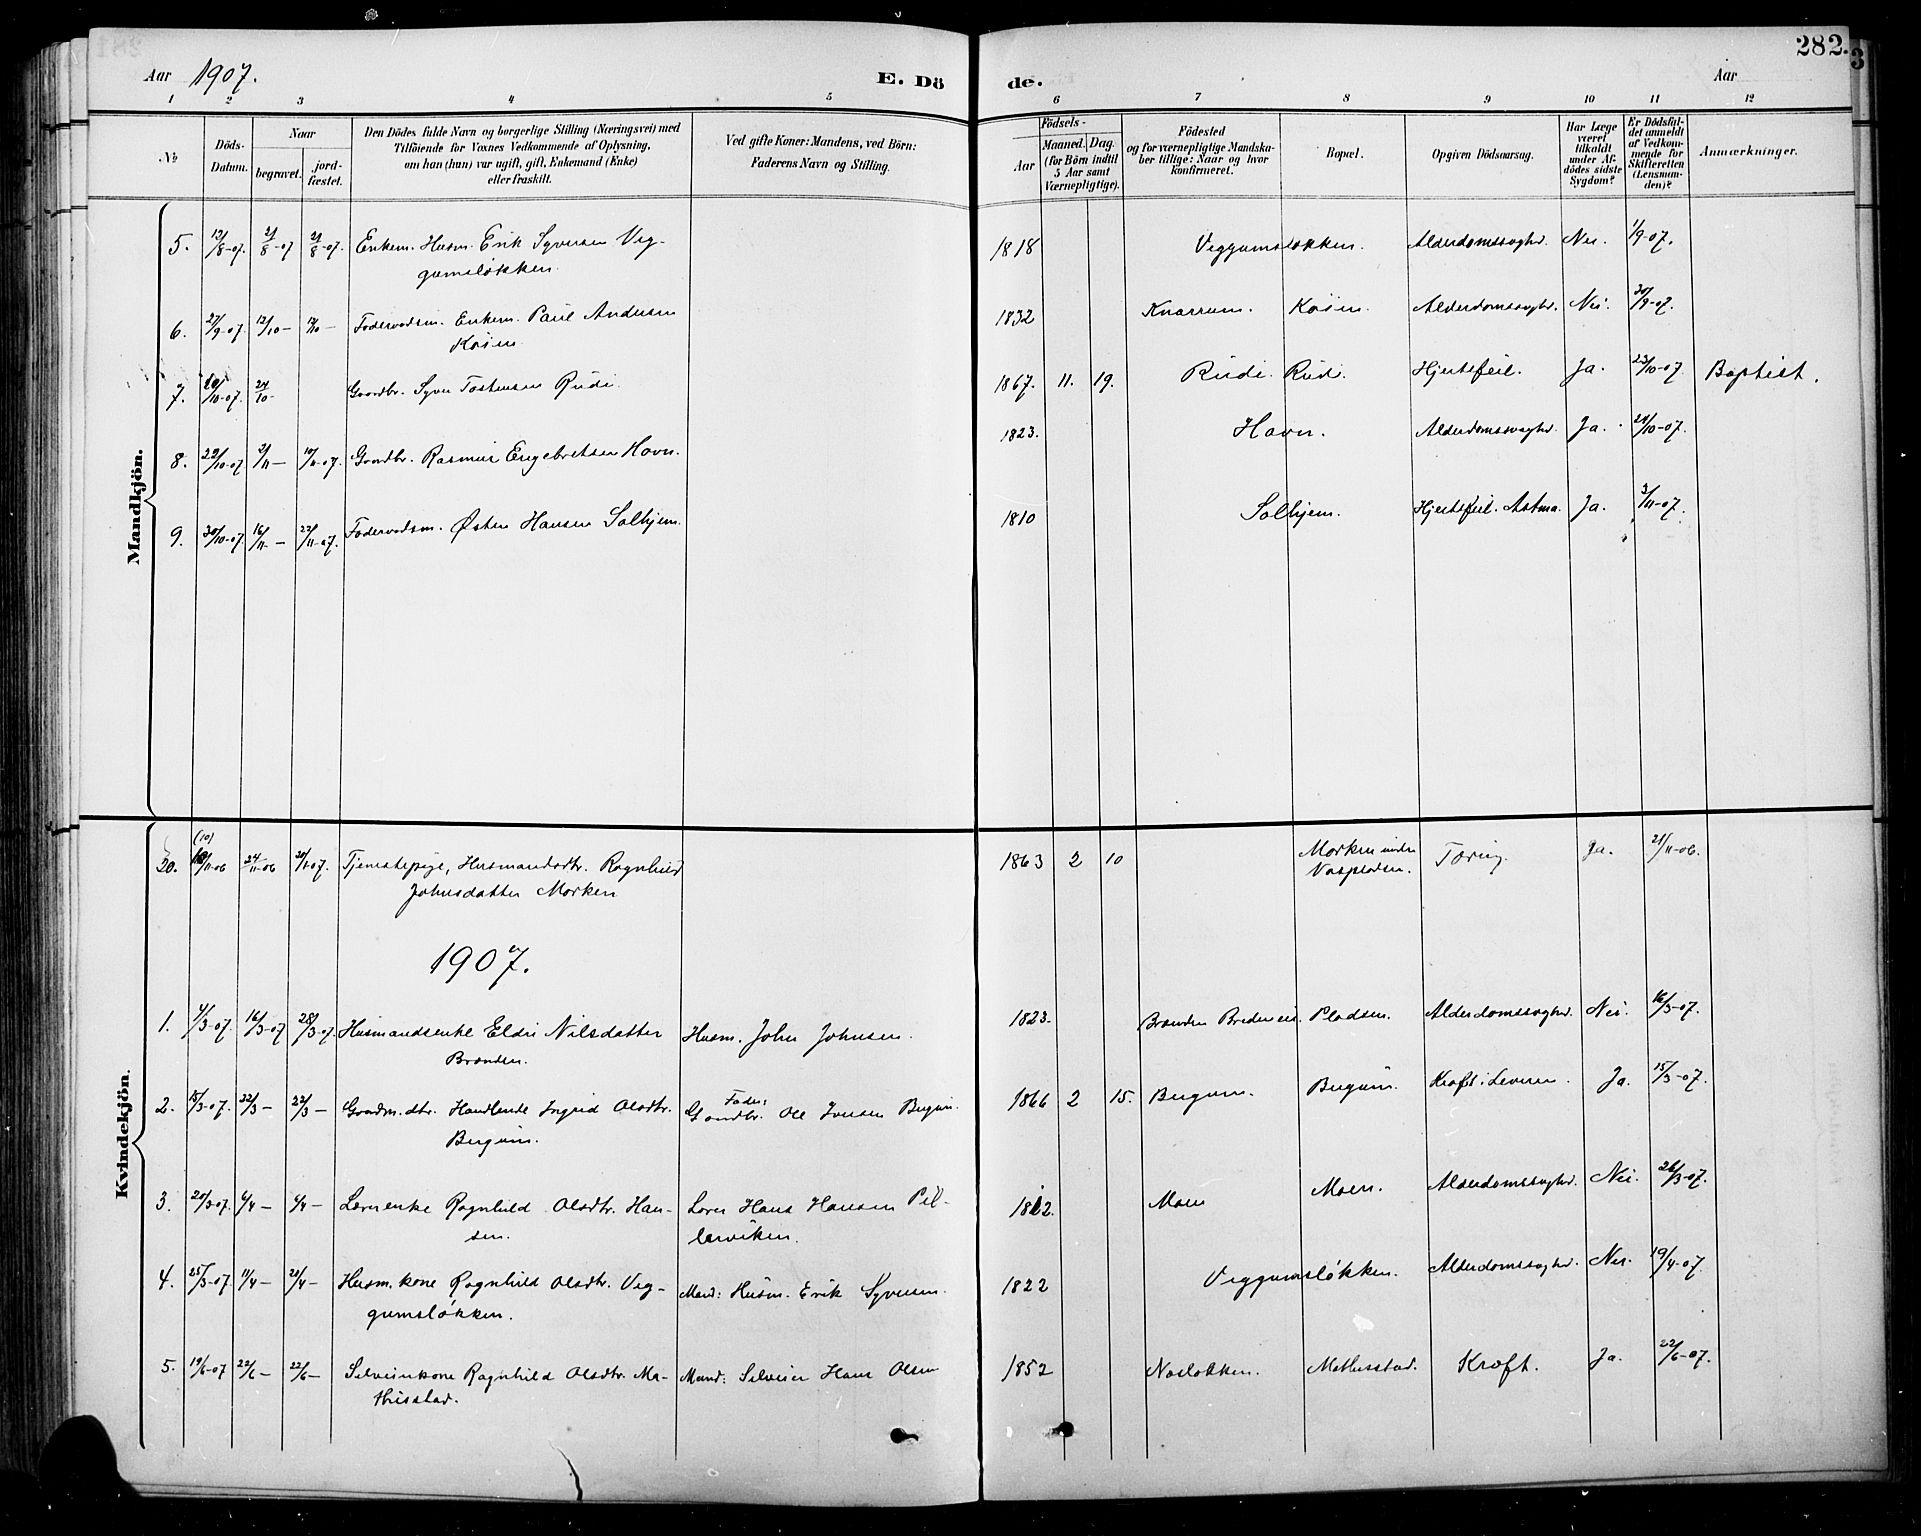 282.
3
Aar 1907.
E. Dö
de.
Aar
1 2 3 4 5 6 7 8 9 10 11 12
No
Döds-
Datum.
Naar
begravet.
jord-
fæstet.
Den Dödes fulde Navn og borgerlige Stilling (Næringsvei) med
Tilföiende for Voxnes Vedkommende af Oplysning,
om han (hun) var ugift, gift, Enkemand (Enke)
eller fraskilt.
Ved gifte Koner: Mandens, ved Börn:
Faderens Navn og Stilling.
Födsels-
Aar
Maaned.
Dag.
(for Börn indtil
5 Aar samt
Værnepligtige).
Födested
og for værnepligtige Mandska-
ber tillige: Naar og hvor
konfirmeret.
Bopæl.
Opgiven Dödsaarsag.
Har Læge
været
tilkaldt
under Af-
dödes sidste
Sygdom?
Er Dödsfal-
det anmeldt
af Vedkom-
mende for
Skifteretten
(Lensman-
den)?
Anmærkninger.
Mandkjön.
5. 12/8-07. 21/8-07 21/8-07. Enkem. Husm. Erik Syversen Veg-
gumsløkken.
1818 Veggumsløkken. Alderdomssvaghd. Nei. 1/9-07.
6. 27/9-07. 12/10- 12/10- Føderaadsm. Enkem. Paul Andersen
Kåsen.
1832 Knarrum. Kåsen. Alderdomssvaghd. Nei. 30/9-07.
7. 20/10-07. 24/10- Gaardbr. Syver Tostensen Rudi.
1867. 11. 19. Rudi. Rudi. Hjertefeil. Ja. 23/10-07. Baptist.
8. 22/10-07 2/11- 10/11-07. Gaardbr. Rasmus Engebretsen Havn.
1823. Havn. Alderdomssvaghd. Ja. 24/10-07.
9. 30/10-07. 16/11- 23/11-07. Føderaadsm. Østen Hansen Solhjem.
1810 Solhjem. Hjertefeil. Astma. Ja. 3/11-07.
Kvindekjön.
(10)
20. 18/11-06 24/11-06 20/1-07. Tjenestepige, Husmandsdtr. Ragnhild
Johnsdatter Morken
1863 2 10 Morken under
Vaspladsen. Tæring. Ja. 21/11-06.
1907.
1. 4/3-07. 16/3-07 28/3-07. Husmandsenke Eldri Nilsdatter
Brænden.
Husm. John Johnsen.
1823. Brænden Pladsen. Alderdomssvaghd. Nei. 16/3-07.
2. 15/3-07. 22/3- 22/3- Gaardm.dtr. Handlende Ingrid Olsdtr.
Bergum.
Fader:
Gaardbr. Ole Iversen Bergum.
1866 2 15. Bergum. Bergum. Kræft i Leveren. Ja. 15/3-07.
3. 20/3-07. 6/4- 6/4- Lærerenke Ragnhild Olsdtr. Han-
sen.
Lærer Hans Hansen Pil-
lerviken.
1812. Moen Moen. Alderdomssvaghd. Nei. 26/3-07.
4. 25/3-07. 11/4- 20/4- Husm.kone Ragnhild Olsdtr. Veg-
gumsløkken.
Mand: Husm. Erik Syversen.
1822 Veggumsløkken. Alderdomssvaghd. Nei. 19/4-07.
5. 19/6-07 22/6- 22/6- Selveierkone Ragnhild Olsdtr. Ma-
thisstad.
Mand: Selveier Hans Olsen
1852 Nosløkken. Mathisstad. Kræft. Ja. 22/6-07.